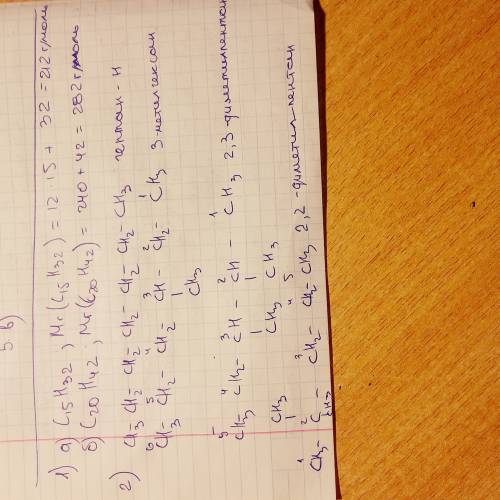 5 в)
1) а) C15H32 ; Mr(C15H32) = 12·15 + 32 = 212 г/моль
б) C20H42 ; Mr(C20H42) = 240 + 42 = 282 г/моль
2) CH3 CH2 - CH2 - CH2 - CH2 - CH2 - CH3 гептан - н
6 5 4 3 2 1
CH3 - CH2 - CH2 - CH - CH2 - CH3 3-метилгексан
CH3
5 4 3 2 1
CH3 - CH2 - CH - CH - CH3 2,3-диметилпентан
CH3 CH3
CH3
1 2 3 4 5
CH3 - C - CH2 - CH2 - CH3 2,2-диметил-пентан
CH3